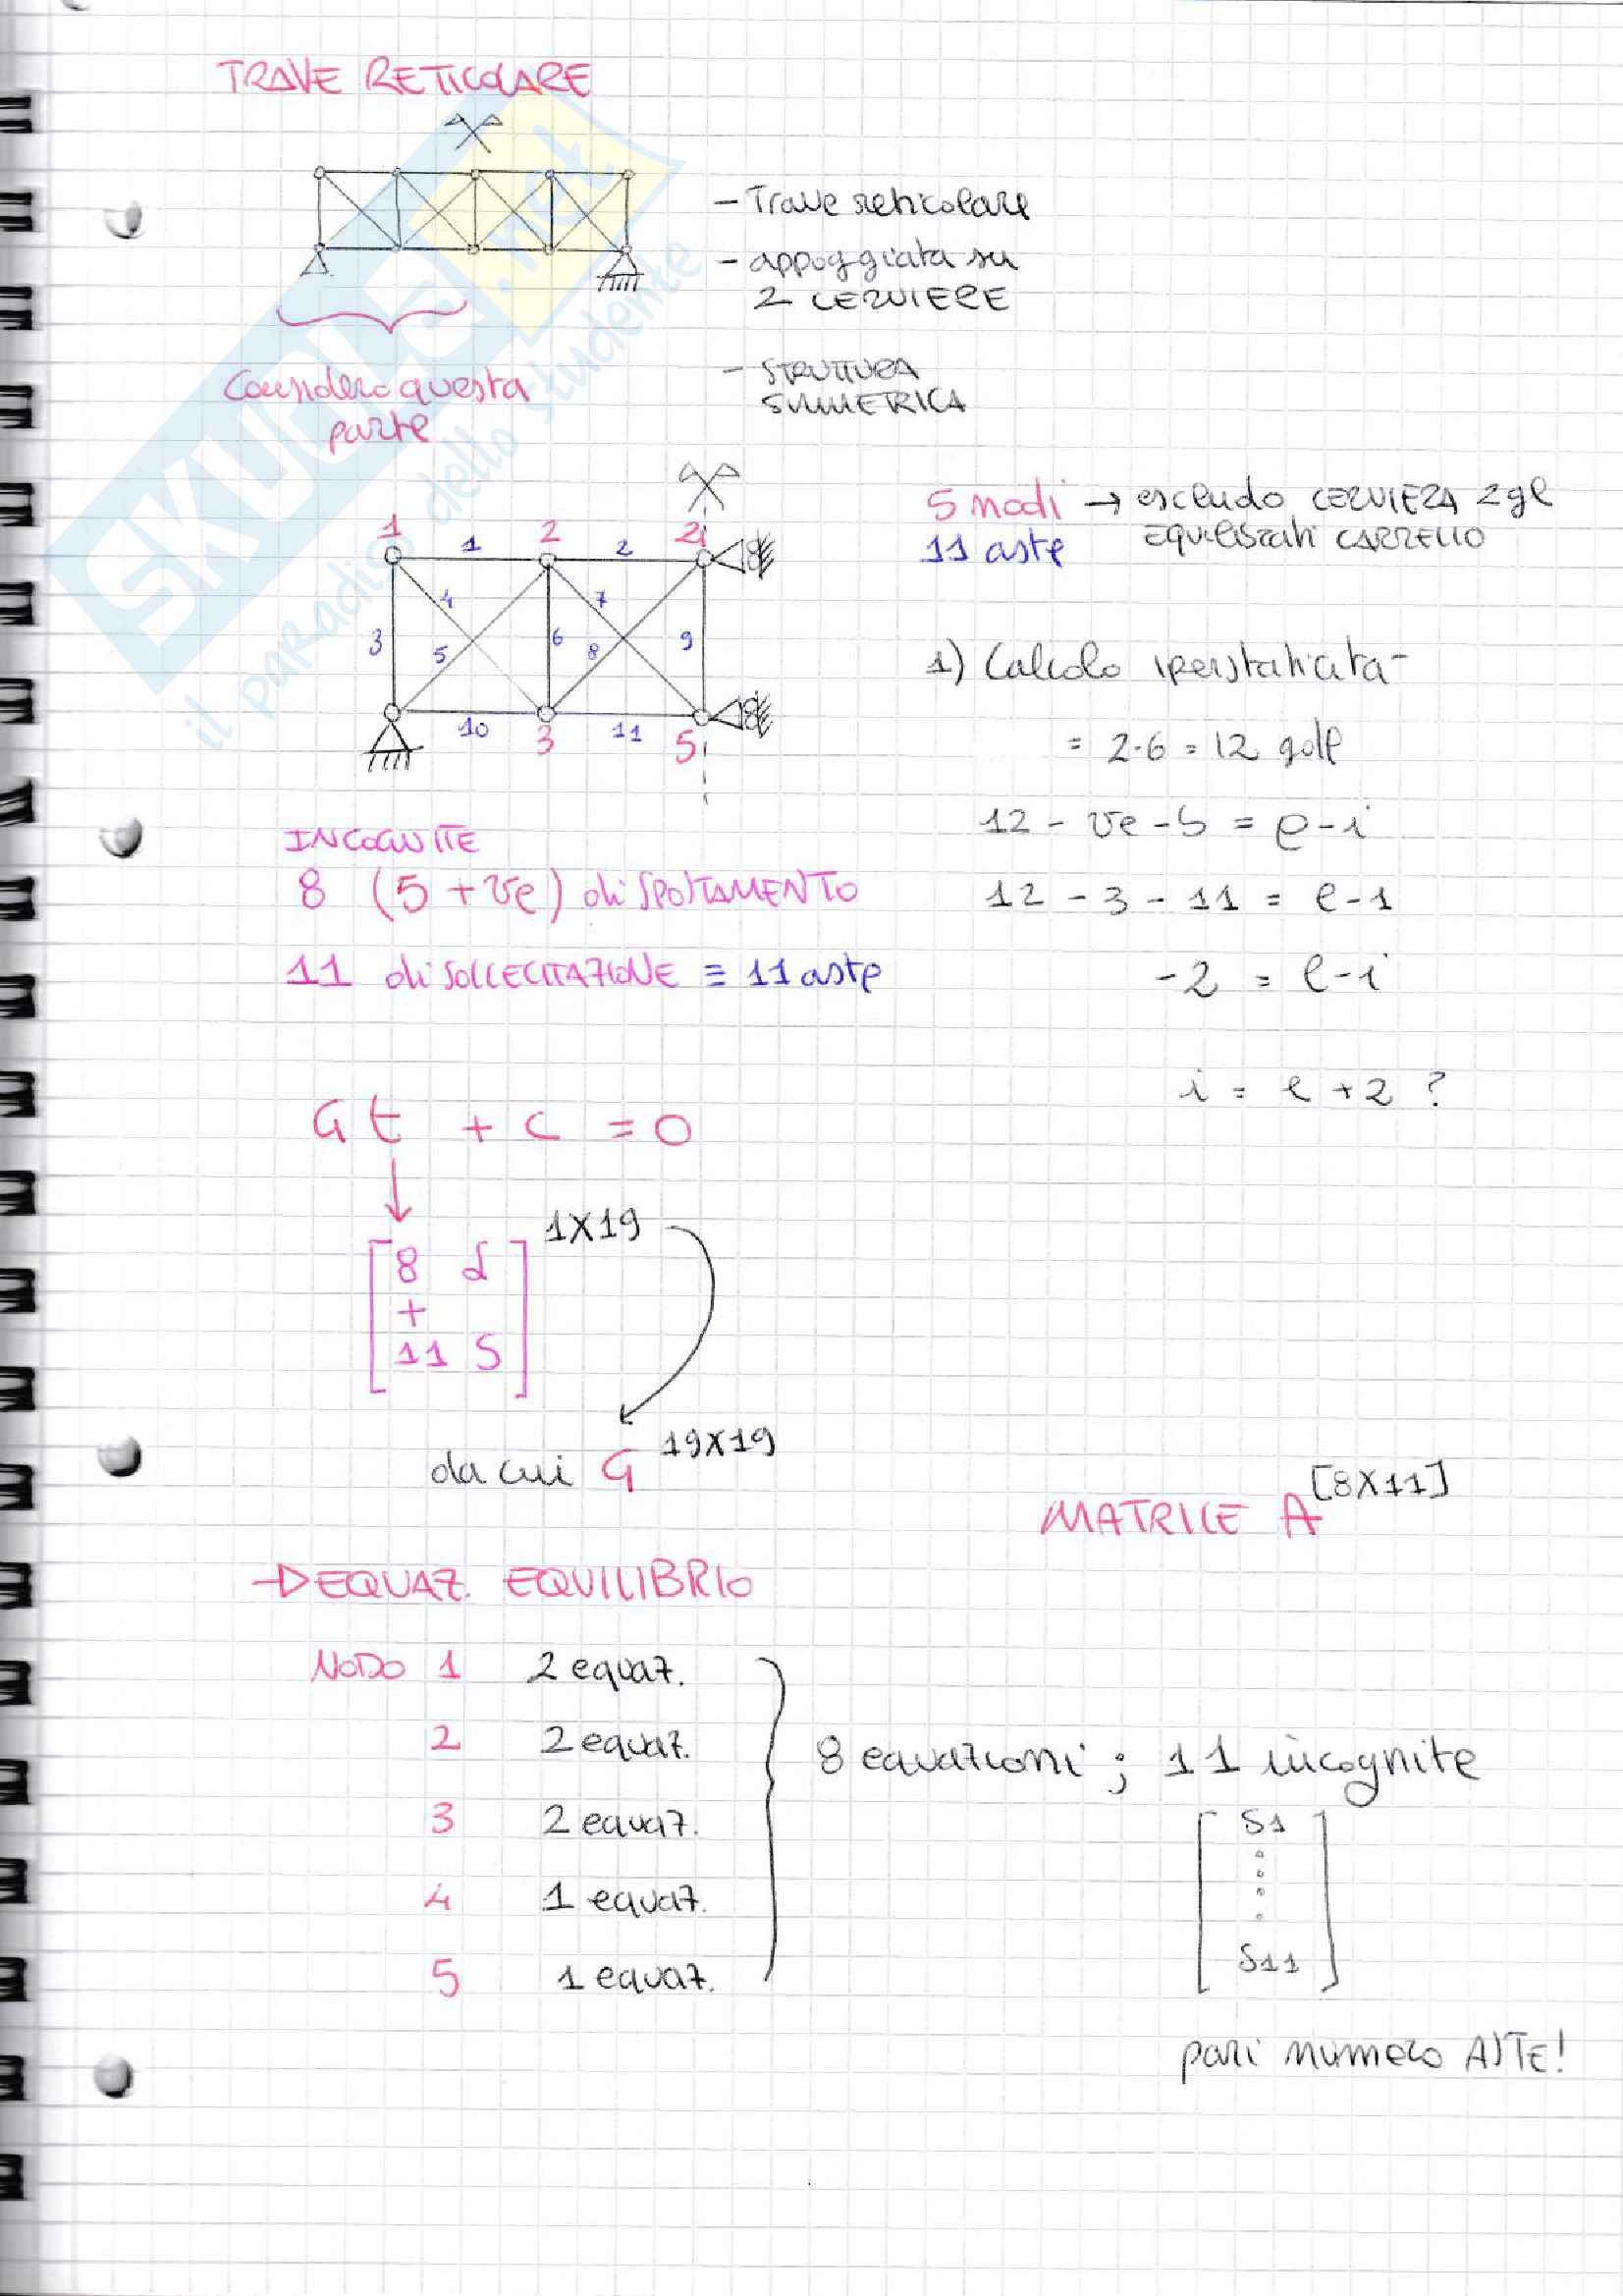 TRAVE RETICOLARE
- Trave reticolare
- appoggiata su
2 CERNIERE
- STRUTTURA
SIMMETRICA
Considero questa
parte
SKUOLA.net
il paradiso dello studente
5 nodi → escludo CERNIERA 2gl
11 aste EQUILIBRATI CARRELLO
1 2 4
1 2
3 4 5 6 7 8 9
10 11
3 5
1) Calcolo iperstaticità
= 2·6 = 12 gdl
12 - ve - b = e - i
12 - 3 - 11 = e - 1
-2 = l - i
i = e + 2 ?
INCOGNITE
8 (5 + ve) di SPOSTAMENTO
11 di SOLLECITAZIONE = 11 aste
G t + c = 0
1X19
8 d
+
11 S
da cui G 19X19
MATRICE A [8X11]
→ EQUAZ. EQUILIBRIO
NODO 1 2 equaz.
2 2 equaz.
3 2 equaz.
4 1 equaz.
5 1 equaz.
8 equazioni ; 11 incognite
S1
S11
pari numero ASTE!